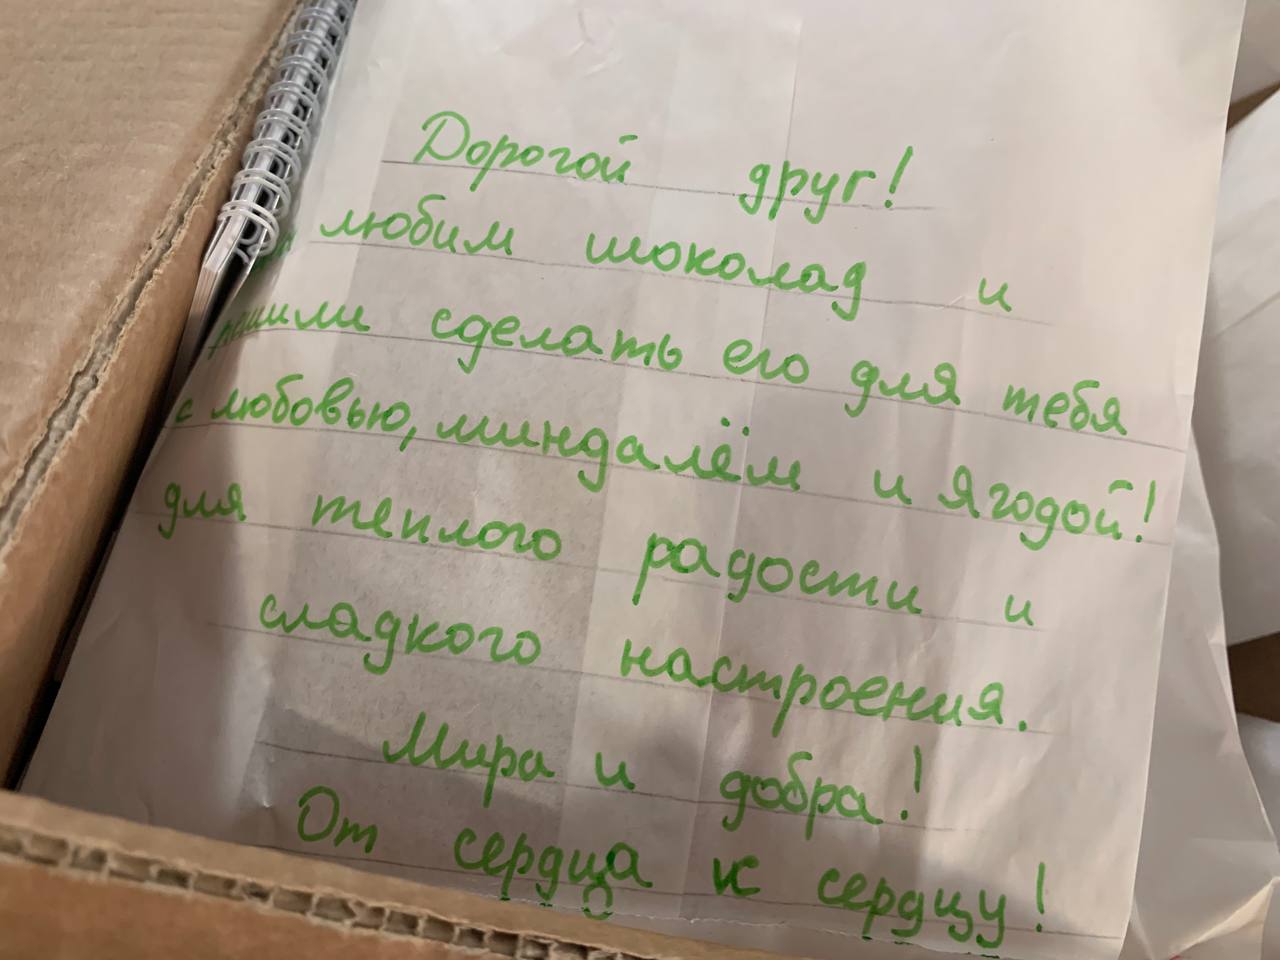 Дорогой друг!
любим шоколад и
решили сделать его для тебя
с любовью, миндалём и ягодой!
для теплого радости и
сладкого настроения.
Мира и добра!
От сердца к сердцу!